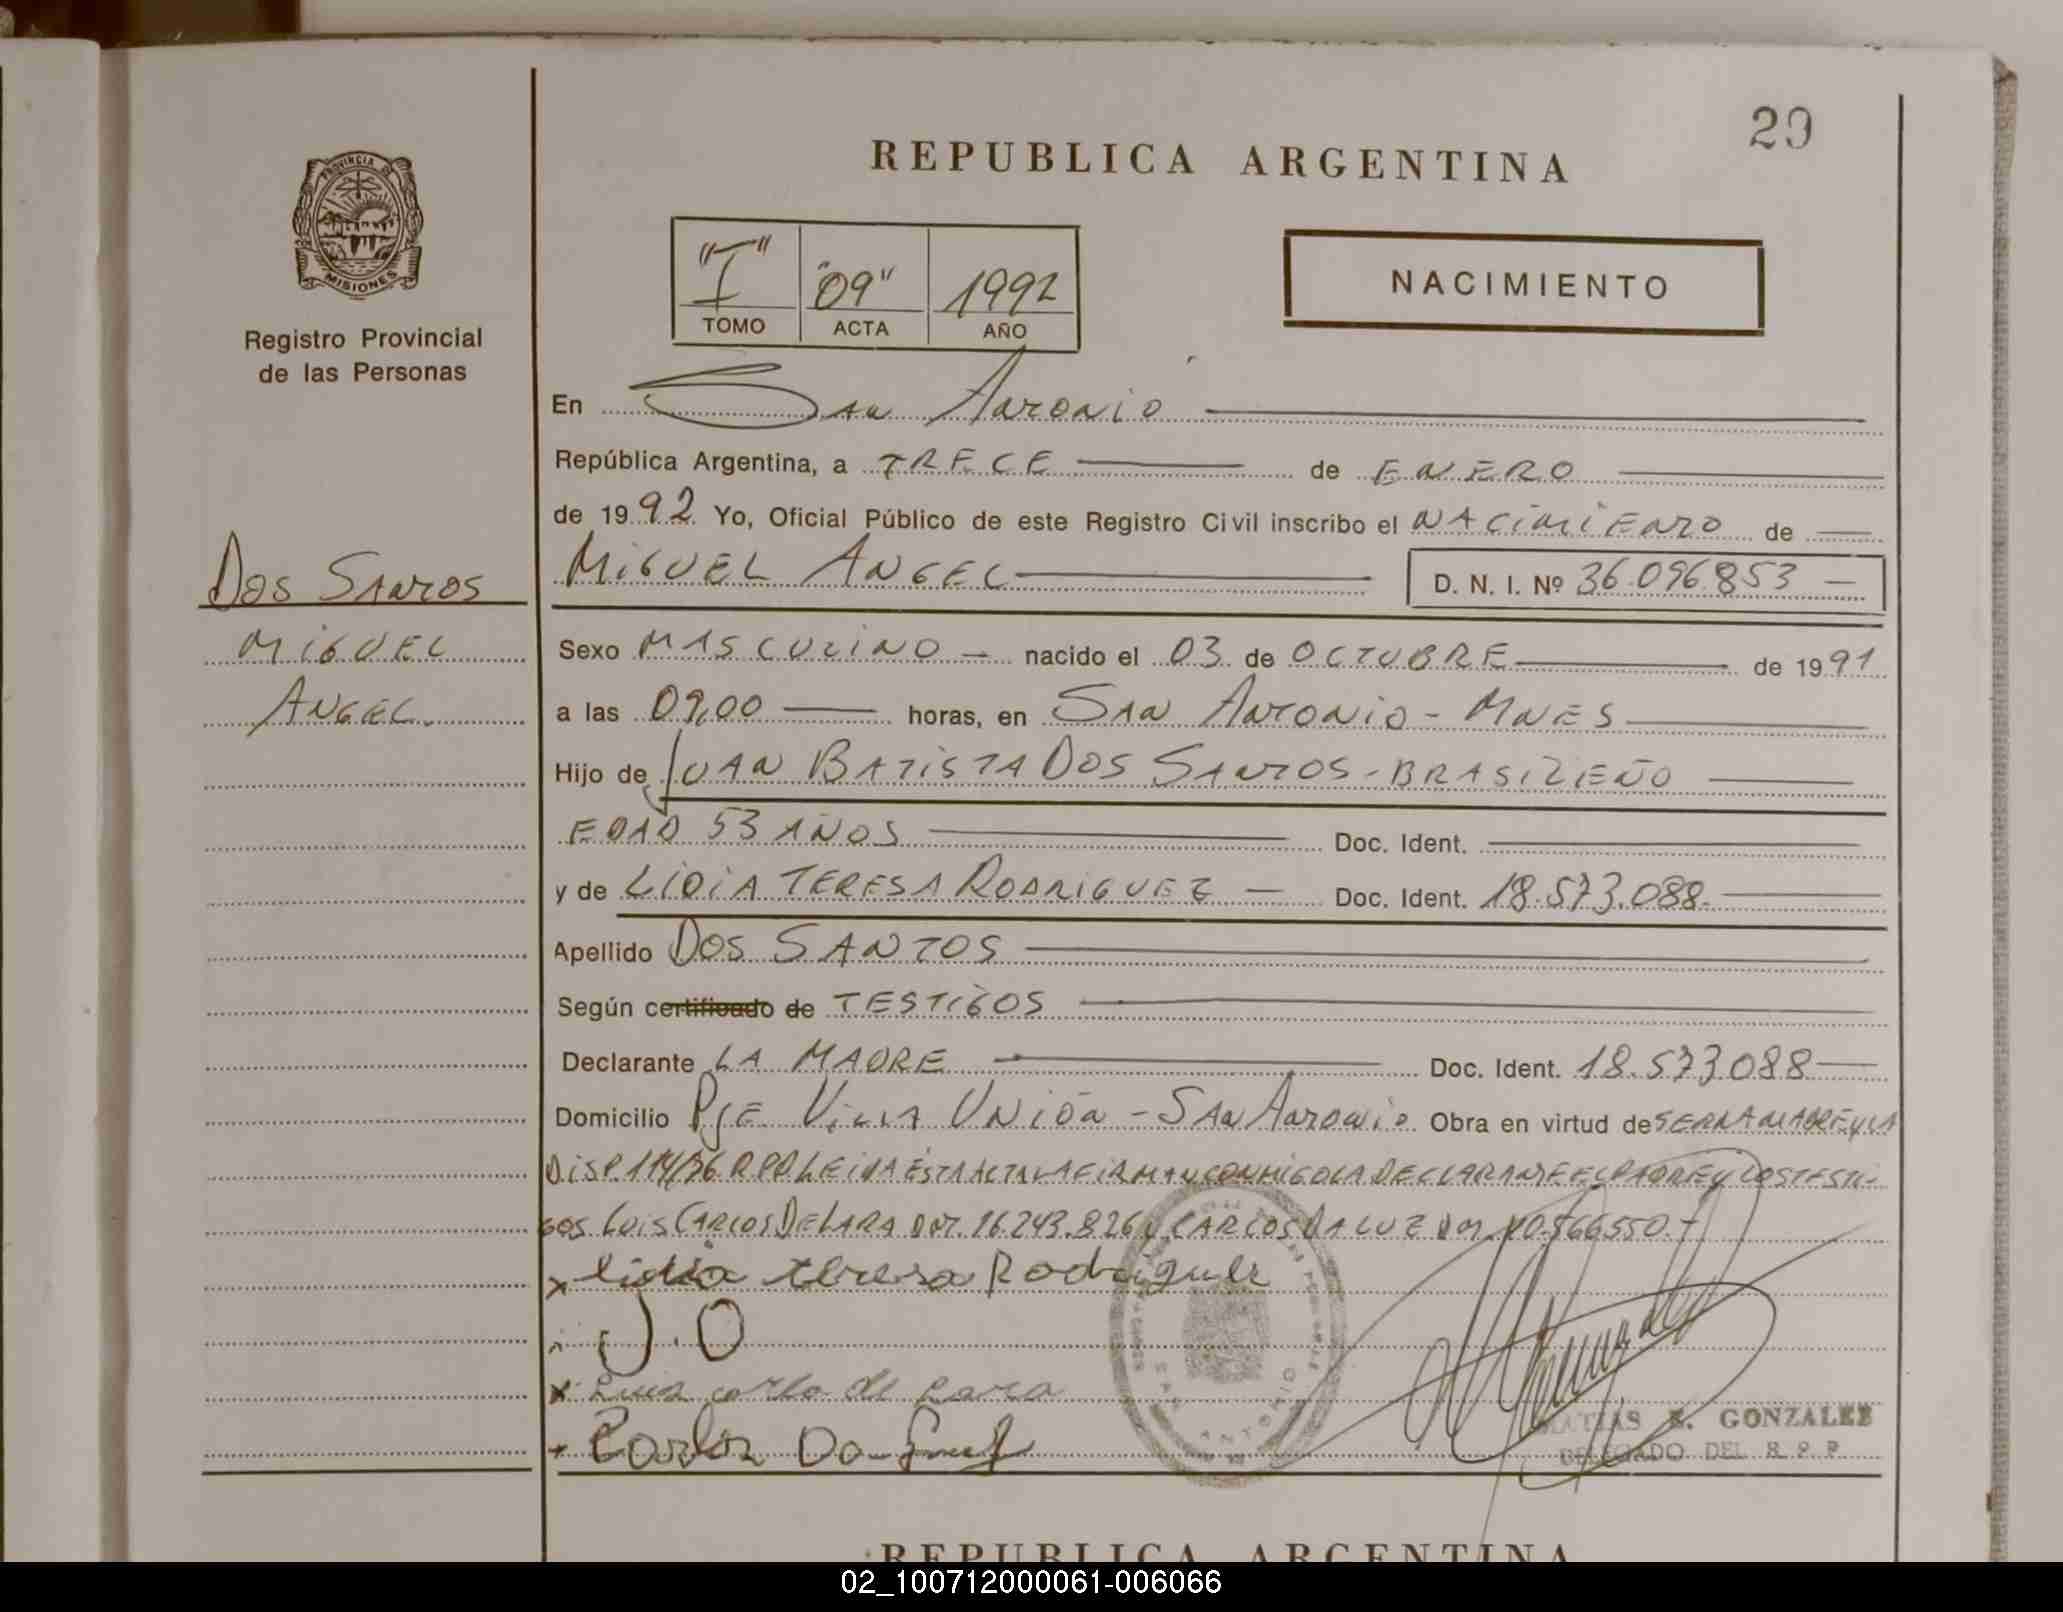 29
REPUBLICA ARGENTINA
PROVINCIA DE
MISIONES
Registro Provincial
de las Personas
"I" "09" 1992
TOMO ACTA AÑO
NACIMIENTO
En San Antonio
República Argentina, a TRECE de ENERO
de 1992 Yo, Oficial Público de este Registro Civil inscribo el NACIMIENTO de
DOS SANTOS
MIGUEL
ANGEL.
MIGUEL ANGEL D. N. I. Nº 36.096.853
Sexo MASCULINO nacido el 03 de OCTUBRE de 1991
a las 09,00 horas, en SAN ANTONIO - MNES
Hijo de JUAN BATISTA DOS SANTOS - BRASILEÑO
EDAD 53 AÑOS Doc. Ident.
y de LIDIA TERESA RODRIGUEZ Doc. Ident. 18.573.088
Apellido DOS SANTOS
Según certificado de TESTIGOS
Declarante LA MADRE Doc. Ident. 18.573.088
Domicilio PJE. VILLA UNIÓN - SAN ANTONIO Obra en virtud de SER LA MADRE Y LA
DISP. 114/76 R.P.P. LEIDA ESTA ACTA LA FIRMAN CONMIGO LA DECLARANTE EL PADRE Y LOS TESTI-
GOS LUIS CARLOS DE LARA DNI. 16.243.826 Y CARLOS DA LUZ DNI
x lidia teresa Rodriguez
J.O
x Luis carlo de Lara
Carlos Da Luz
SAN ANTONIO
MATIAS R. GONZALEZ
DELEGADO DEL R. P. P.
REPUBLICA ARGENTINA
02_100712000061-006066